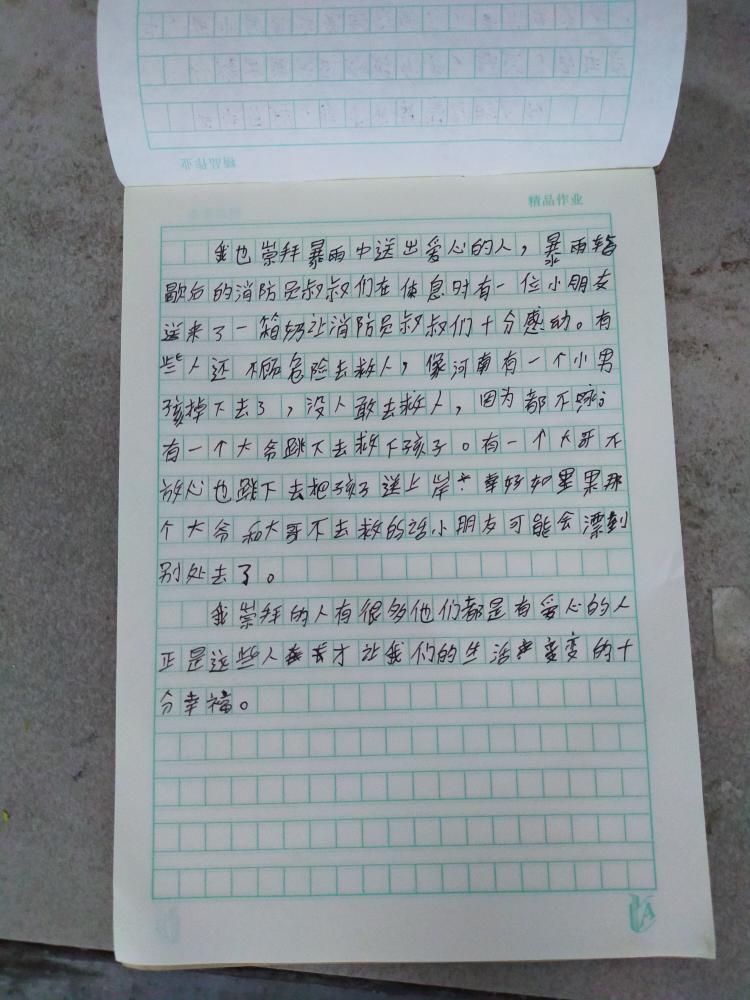 精品作业
我也崇拜暴雨中送出爱心的人，暴雨
的消防员叔叔们在休息时有一位小朋友
送来了一箱奶让消防员叔叔们十分感动。有
些人还不顾危险去救人，像河南有一个小男
孩掉下去了，没人敢去救人，因为都不
有一个大爷跳下去救下孩子。有一个大哥不
放心也跳下去把孩子送上岸幸好如果那
个大爷和大哥不去救的话小朋友可能会漂到
别处去了。
我崇拜的人有很多他们都是有爱心的人
正是这些人才让我们的生活变的十
分幸福。